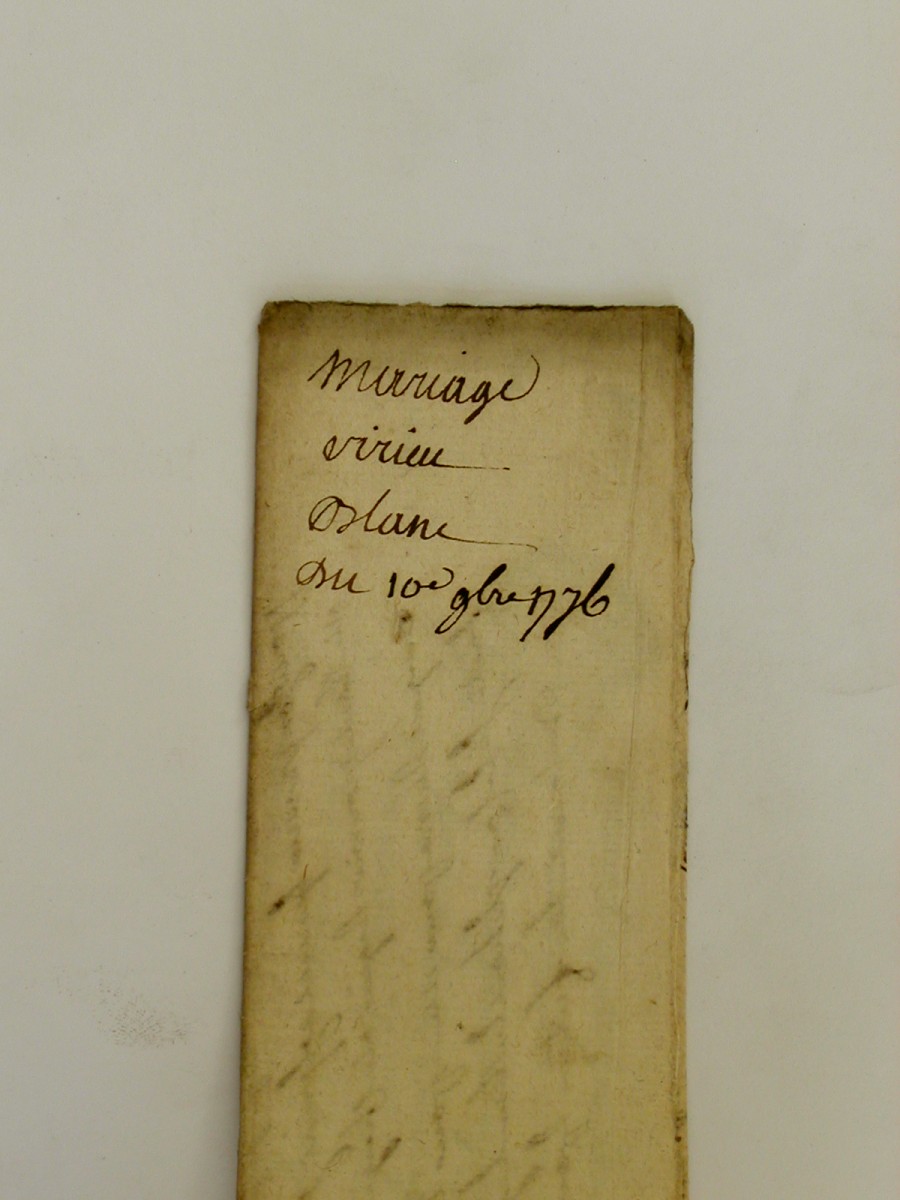 Mariage
virieu
Blanc
Du 10e 9bre 1776